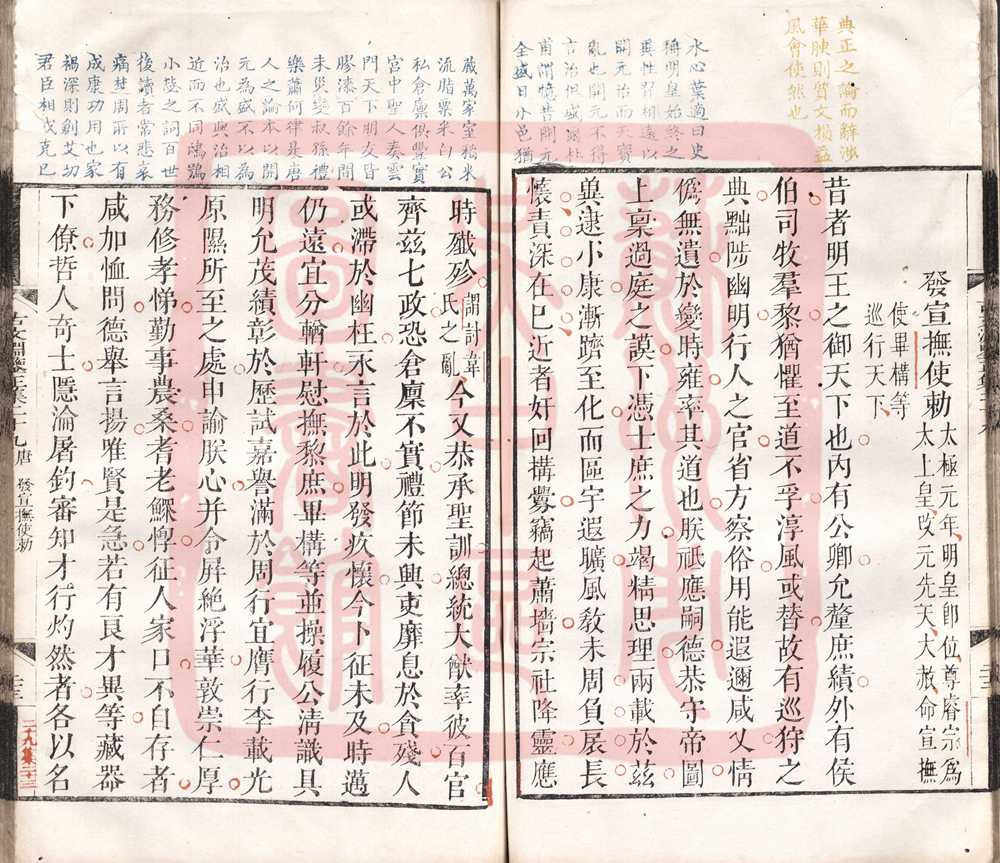 典正之簡而辭涉
華腴則質文損益
風會使然也
水心葉適曰史
稱明皇始終之
異性習相遠以
開元治而天寶
亂也開元不得
言治但盛滿杜
甫謂憶昔開元
全盛日小邑猶
藏萬家室稻米
流脂粟米白公
私倉廩俱豐實
宮中聖人奏雲
門天下朋友皆
膠漆百餘年間
未災變叔孫禮
樂蕭何律是唐
人之論本以開
元為盛不以為
治也盛與治相
近而不同鴟鴞
小毖之詞百世
後讀者常悲哀
痛楚周所以有
成康功用也蒙
禍深則創艾切
君臣相戒克已
發宣撫使勅
太極元年明皇卽位尊睿宗爲
太上皇改元先天大赦命宣撫
使畢構等
巡行天下
昔者明王之御天下也內有公卿允釐庶績外有侯
伯司牧羣黎猶懼至道不孚淳風或替故有巡狩之
典黜陟幽明行人之官省方察俗用能遐邇咸乂情
僞無遺於變時雍率其道也朕祗應嗣德恭守帝圖
上稟過庭之謨下憑士庶之力竭精思理兩載於茲
兾逮小康漸躋至化而區宇遐曠風敎未周負扆長
懷責深在已近者奸回構釁竊起蕭墻宗社降靈應
時殲殄
謂討韋
氏之亂
今又恭承聖訓總統大猷率彼百官
齊茲七政恐倉廩不實禮節未興吏靡息於貪殘人
或滯於幽枉永言於此明發疚懷今卜征未及時邁
仍遠宜分輶軒慰撫黎庶畢構等並操履公淸識具
明允茂績彰於歷試嘉譽滿於周行宜膺行李載光
原隰所至之處申諭朕心并令屏絕浮華敦崇仁厚
務修孝悌勤事農桑耆老鰥惸征人家口不自存者
咸加恤問德舉言揚雅賢是急若有良才異等藏器
下僚哲人奇士隱淪屠釣審知才行灼然者各以名
唐
發宣撫使勅